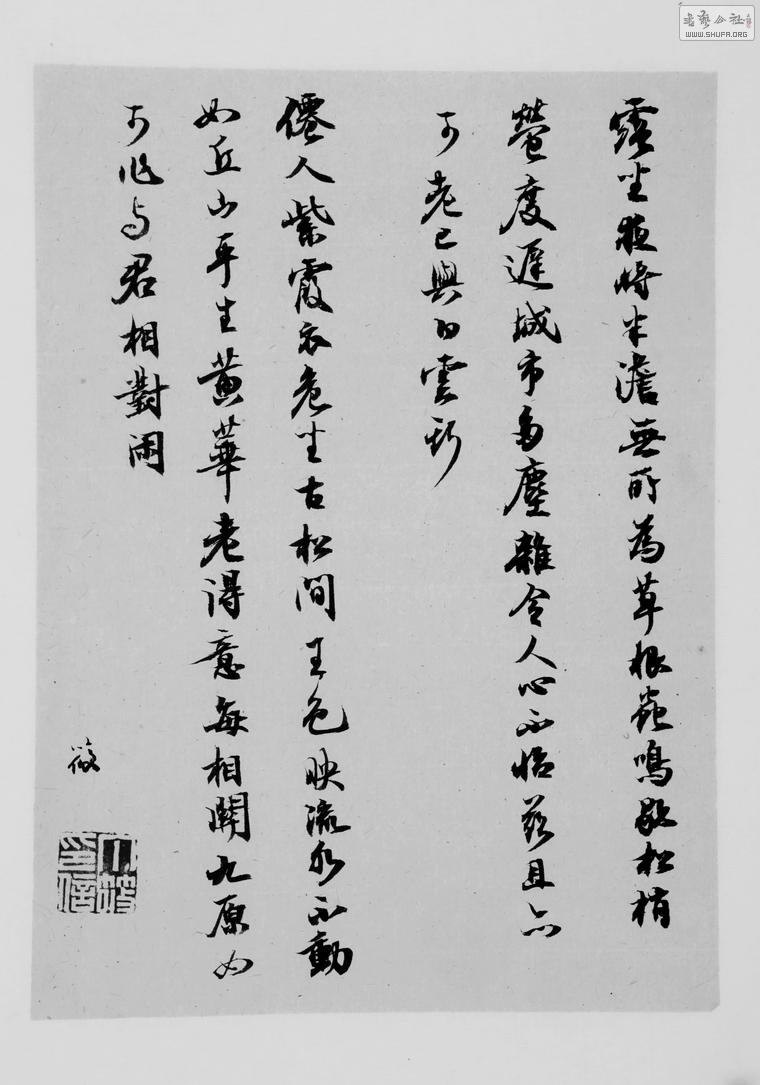 露坐夜將半澹無所為草根蟲鳴歇松梢
螢度遲城市多塵雜令人心不怡茲且亦
可老已與白雲
僊人紫霞衣危坐古松間玉色映流水不動
如丘山平生黃華老得意每相關九原如
可作与君相對閑
筱
書藝公社
WWW.SHUFA.ORG